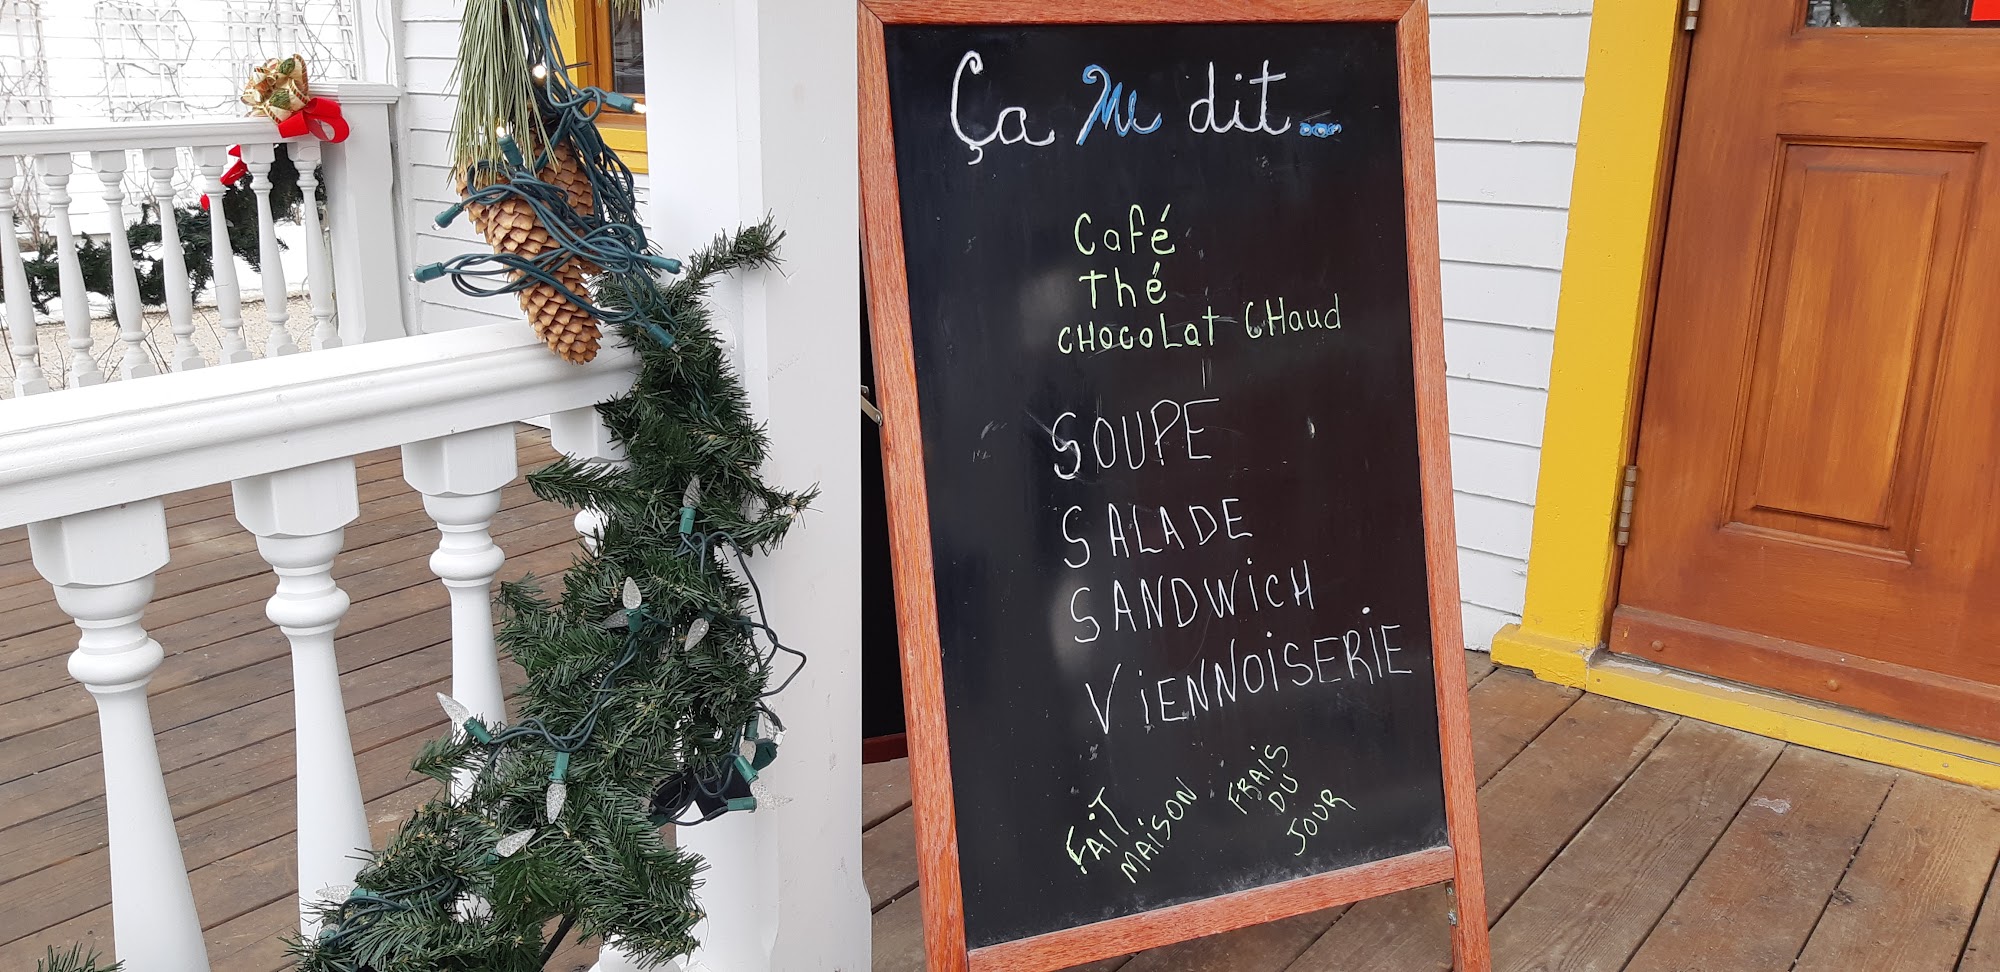 Ça Me dit...
Café
Thé
CHOCOLat CHaud
SOUPE
SALADE
SANDWiCH
ViENNOiSERIE
FAiT
MAiSON
FRAiS
DU
JOUR